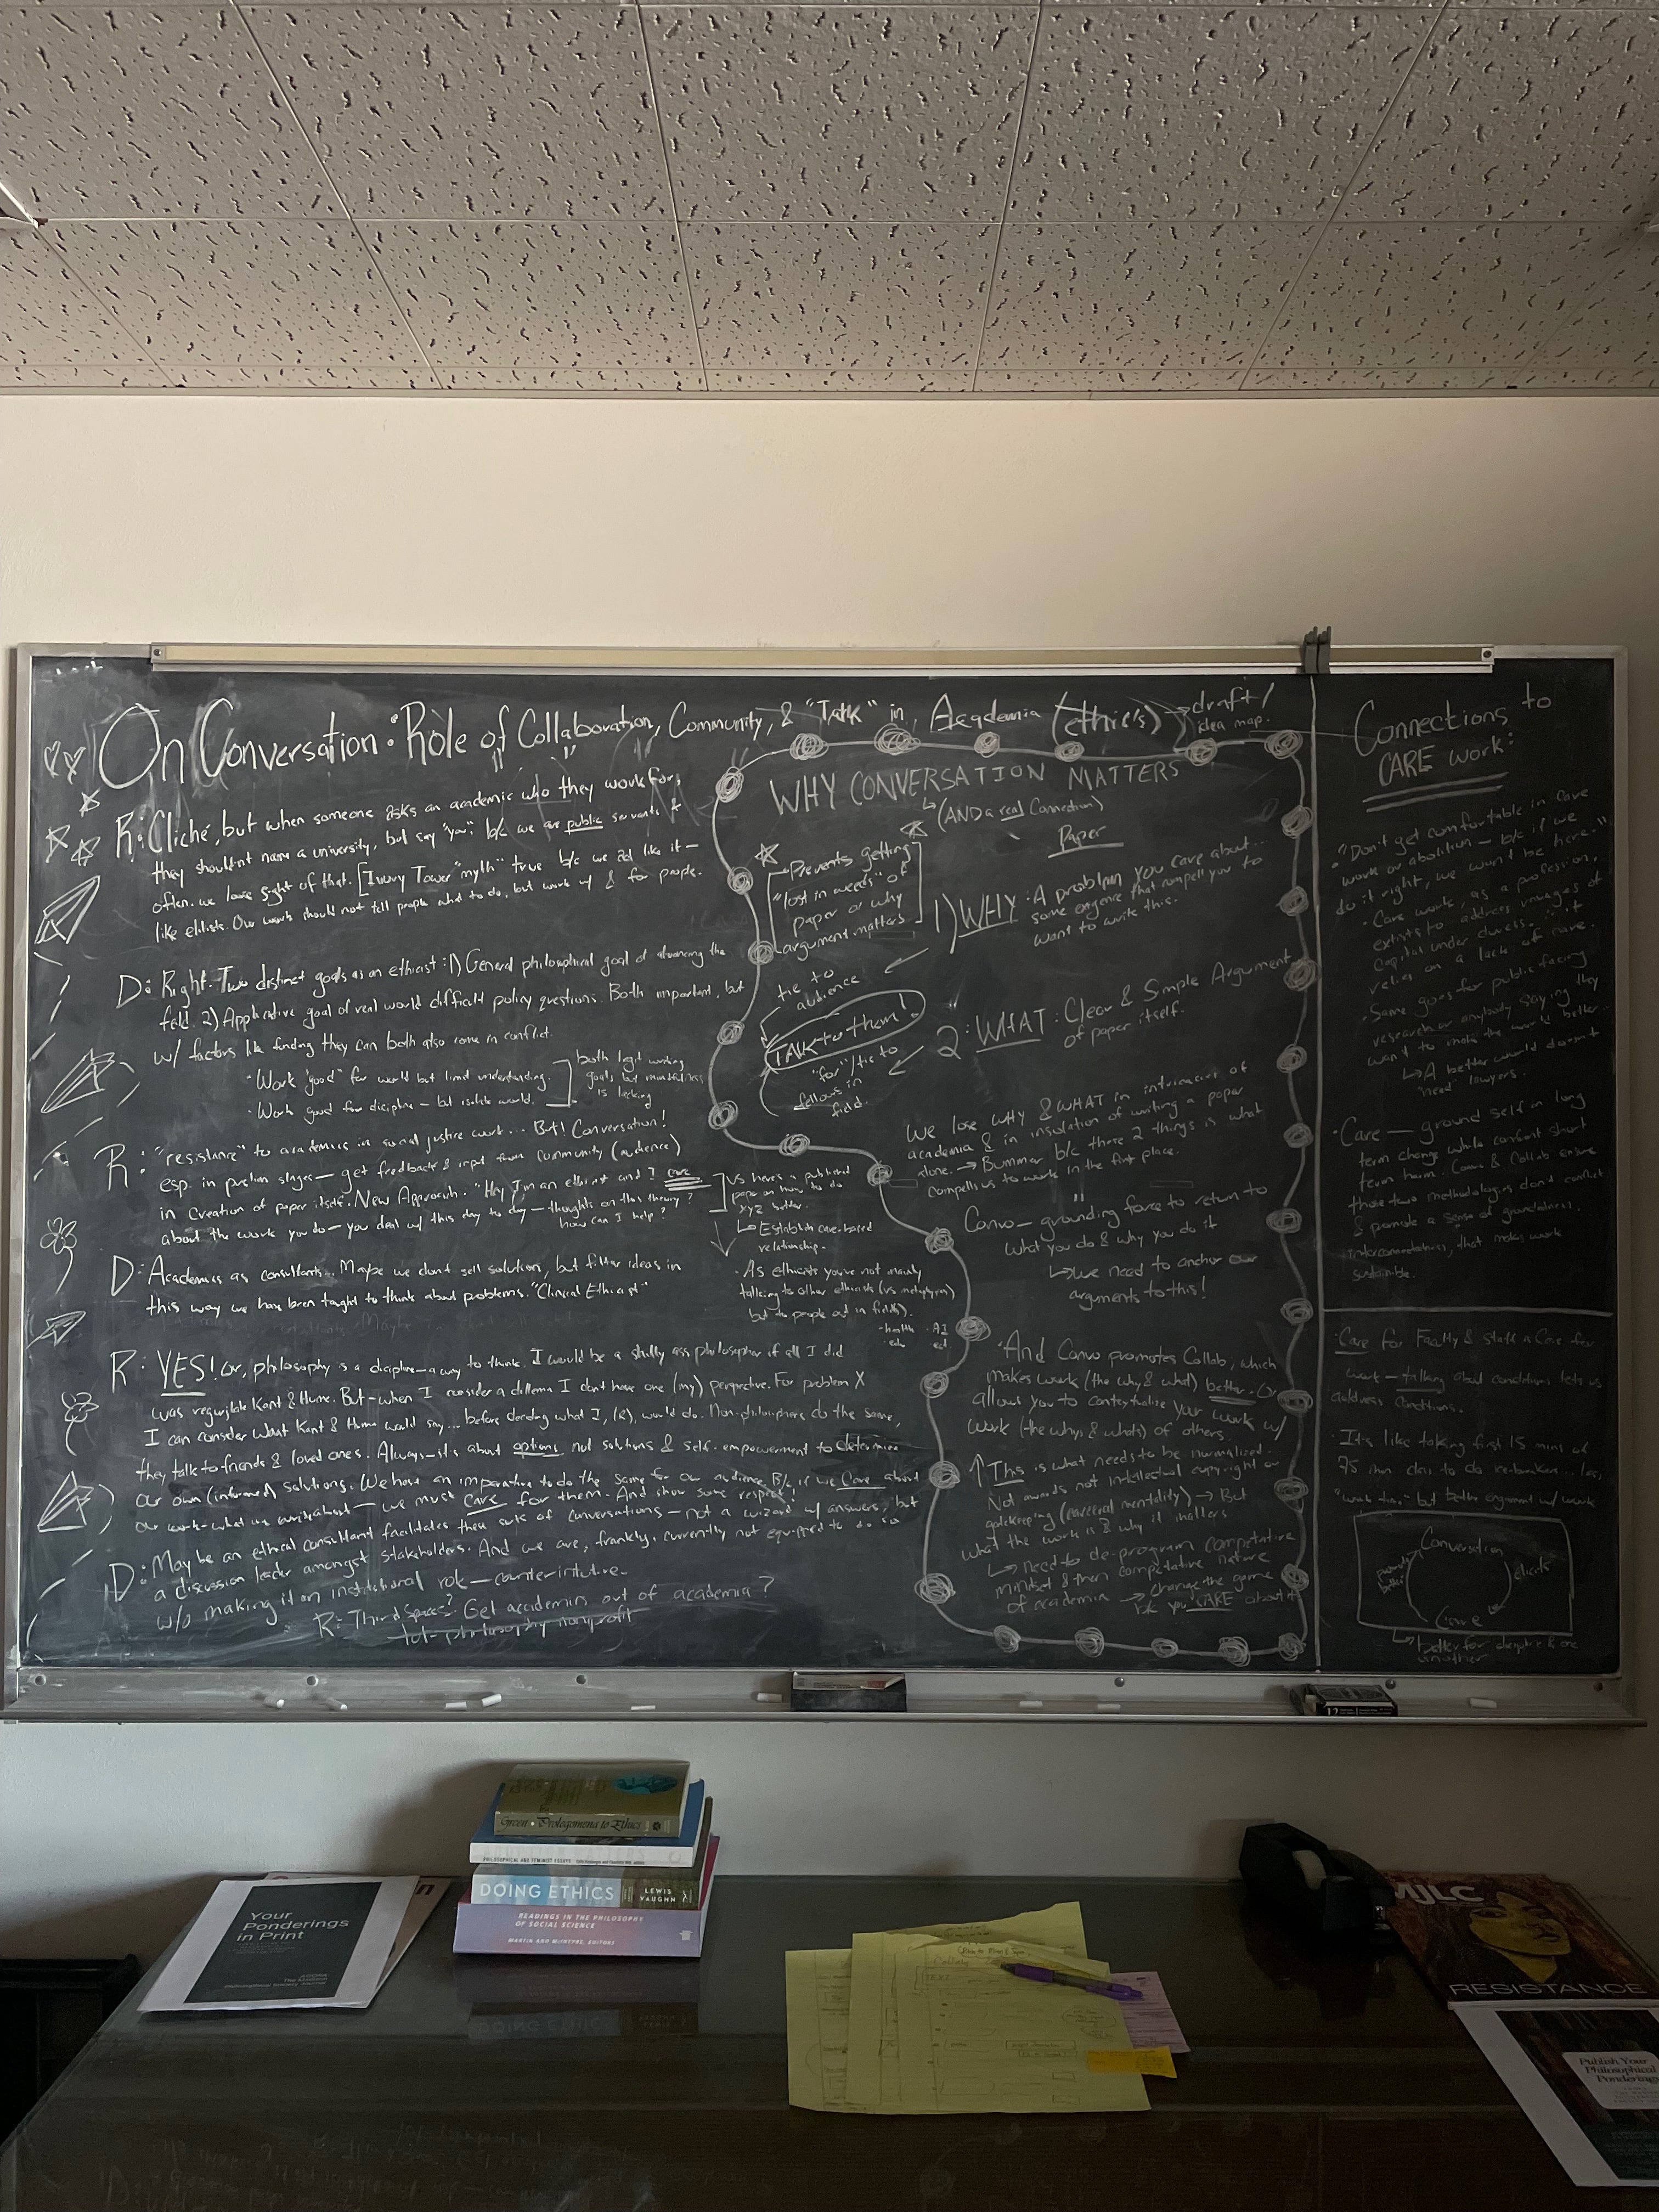 On Conversation: Role of Collaboration, Community, & "Talk" in Academia (ethics) → draft/
idea map.
R: Cliché, but when someone asks an academic who they work for,
they shouldn't name a university, but say "you". b/c we are public servants &
often we lose sight of that. [Ivory Tower "myth" true b/c we act like it—
like elitists. Our work should not tell people what to do, but work w/ & for people.
D: Right. Two distinct goals as an ethicist: 1) General philosophical goal of advancing the
field. 2) Applicative goal of real world difficult policy questions. Both important, but
w/ factors like funding they can both also come in conflict.
· Work "good" for world but limit understanding.
· Work good for discipline — but isolate world.
both legit writing
goals, but mindfulness
is lacking
R: "resistance" to academics in social justice work... But! Conversation!
esp. in problem stages — get feedback & input from community (audience)
in creation of paper itself. New Approach. "Hey I'm an ethicist and I care
about the work you do — you deal w/ this day to day — thoughts on this theory?
how can I help?"
vs here's a published
paper on how to do
xyz better.
↳ Establish care-based
relationship.
· As ethicists you're not mainly
talking to other ethicists (vs metaphysics)
but to people out in fields).
- health · AI
D: Academics as consultants... Maybe we don't sell solution, but filter ideas in
this way we have been taught to think about problems. "Clinical Ethicist"
R: YES! Or, philosophy is a discipline — a way to think. I would be a shitty ass philosopher if all I did
was regurgitate Kant & Hume. But — when I consider a dilemma I don't have one (my) perspective. For problem X
I can consider what Kant & Hume would say... before deciding what I, (R), would do. Non-philosophers do the same,
they talk to friends & loved ones. Always — it's about options not solutions & self-empowerment to determine
our own (informed) solutions. We have an imperative to do the same for our audience. B/c, if we Care about
our work — what we write about — we must care for them. And show some respect.
D: Maybe an ethical consultant facilitates these sorts of conversations — not a wizard w/ answers, but
a discussion leader amongst stakeholders. And we are, frankly, currently not equipped to do so
w/o making it an institutional role — counter-intuitive.
R: Third Spaces? Get academics out of academia?
philosophy nonprofit
WHY CONVERSATION MATTERS
↳ (AND a real Connection)
Paper
Prevents getting
"lost in weeds" of
paper or why
argument matters
1) WHY: A problem you care about...
some exigence that compell you to
want to write this.
tie to
audience.
TALK to them!
"for"/tie to
fellows in
field.
2: WHAT: Clear & Simple Argument
of paper itself.
We lose WHY & WHAT in intricacies of
academia & in insulation of writing a paper
alone. → Bummer b/c these 2 things is what
compells us to work in the first place.
Convo — grounding force to return to
what you do & why you do it
↳ we need to anchor our
arguments to this!
· And Convo promotes Collab, which
makes work (the why & what) better. Or
allows you to contextualize your work w/
work (the whys & whats) of others.
↑ This is what needs to be normalized.
Not awards not intellectual copyright or
gatekeeping → But
what the work is & why it matters
↳ need to de-program competative
mindset & them competative nature
of academia → change the game
like you CARE about it
Connections to
CARE work:
· "Don't get comfortable in care
work or abolition — b/c if we
do it right, we won't be here."
· Care work, as a profession,
exists to address
Capital under duress... it
relies on a lack of care.
· Same goes for public facing
research or anybody saying they
want to make the world better.
↳ A better world doesn't
"need" lawyers.
· Care — ground self in long
term change while confront short
term harm. Convo & Collab ensure
those two methodologies don't conflict
& promote a sense of groundedness,
interconnectedness, that makes work
sustainable.
· Care for Faculty & Staff is Care for
work — talking about conditions lets us
address conditions.
· It's like taking first 15 mins of
75 min class to do ice-breaker...
but better engagement w/ work
Conversation
elicits
Care
better for discipline & one
another
12
Green • Prolegomena to Ethics
PHILOSOPHICAL AND FEMINIST ESSAYS
DOING ETHICS
LEWIS
VAUGHN
READINGS IN THE PHILOSOPHY
OF SOCIAL SCIENCE
MARTIN AND McINTYRE, EDITORS
Your
Ponderings
in Print
MJLC
RESISTANCE
Publish Your
Philosophical
Ponderings